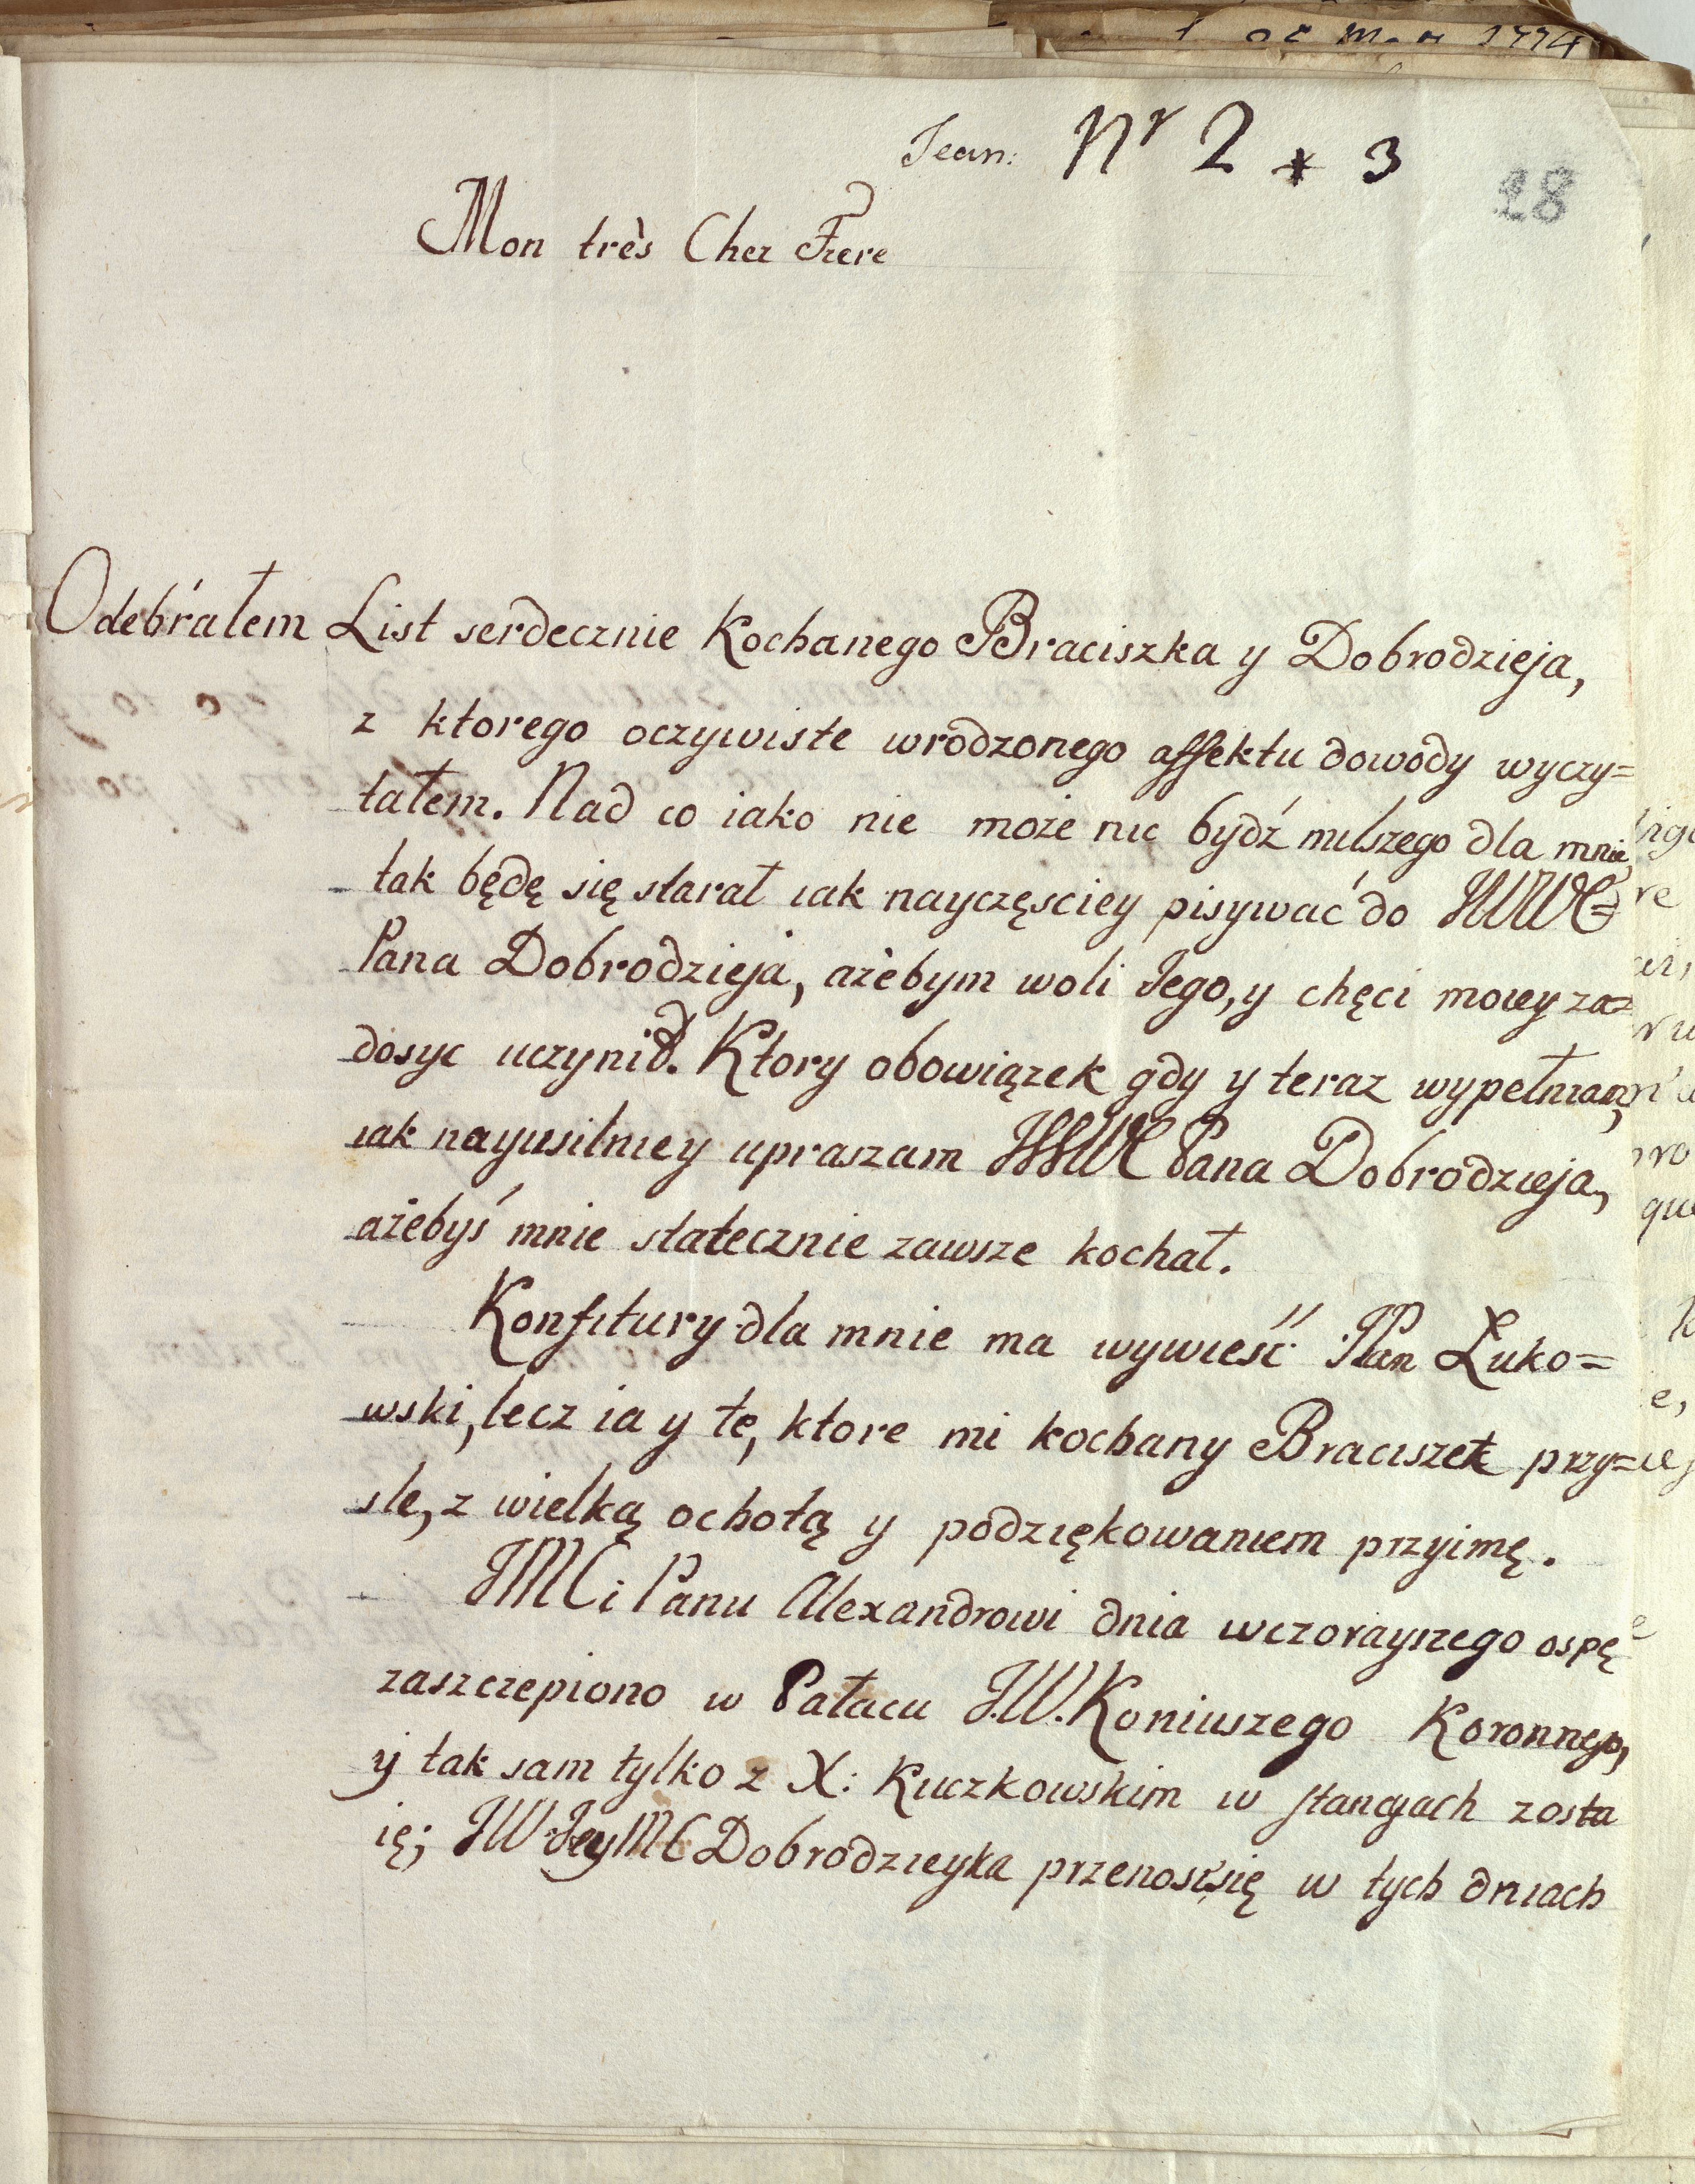 1774
Jean: Nr 2 * 3
28
Mon très Cher Frere
Odebrałem List serdecznie Kochanego Braciszka y Dobrodzieja,
z ktorego oczywiste wrodzonego affektu dowody wyczy=
tałem. Nad co iako nie może nic bydź milszego dla mnie
tak będę się starał iak nayczęsciey pisywać do JWWC=
Pana Dobrodzieja, ażebym woli Jego, y chęci moiey za=
dosyc uczynił. Ktory obowiązek gdy y teraz wypełniam,
iak nayusilniey upraszam JWWC Pana Dobrodzieja,
ażebyś mnie statecznie zawsze kochał.
Konfitury dla mnie ma wywieść JPan Łuko=
wski, lecz ia y te, ktore mi kochany Braciszek przy=
sle, z wielką ochotą y podziękowaniem przyimę.
JMCi Panu Alexandrowi dnia wczorayszego ospę
zaszczepiono w Pałacu J.W. Koniuszego Koronnego,
y tak sam tylko z X: Kuczkowskim w stancjach zosta
ię; JW JeyMC Dobrodzieyka przenosi się w tych dniach